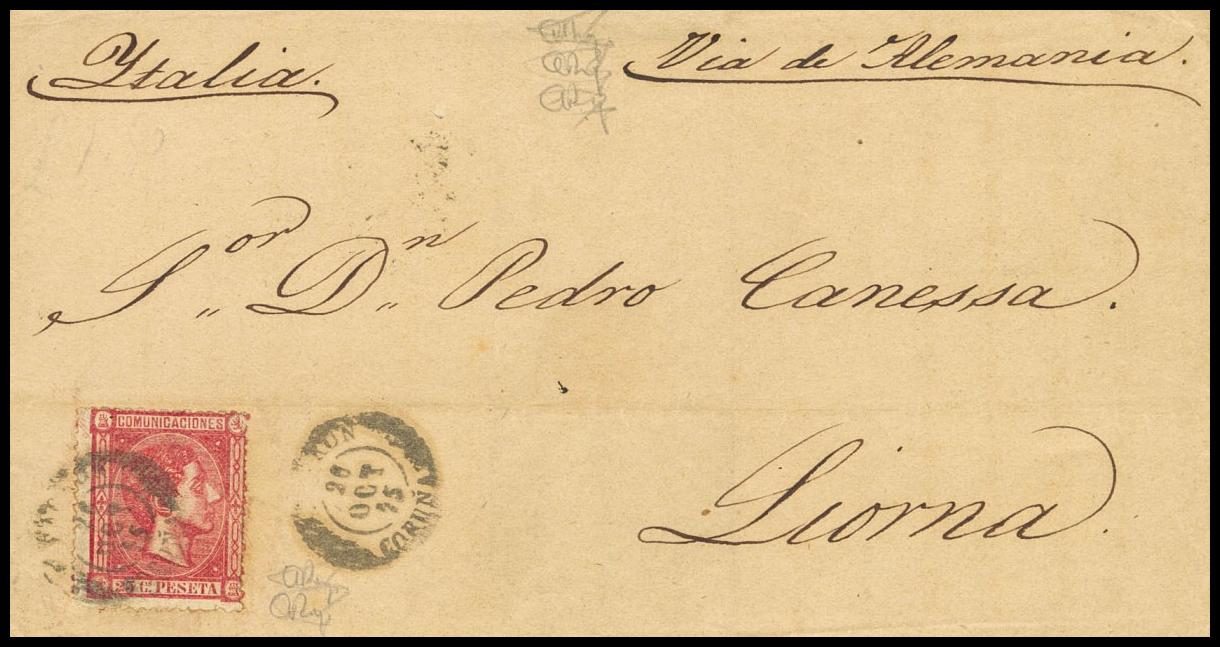 Ytalia.
Via de Alemania.
S.or D.n Pedro Canessa.
Liorna.
COMUNICACIONES
25 Cs PESETA
26
OCT
75
CORUÑA